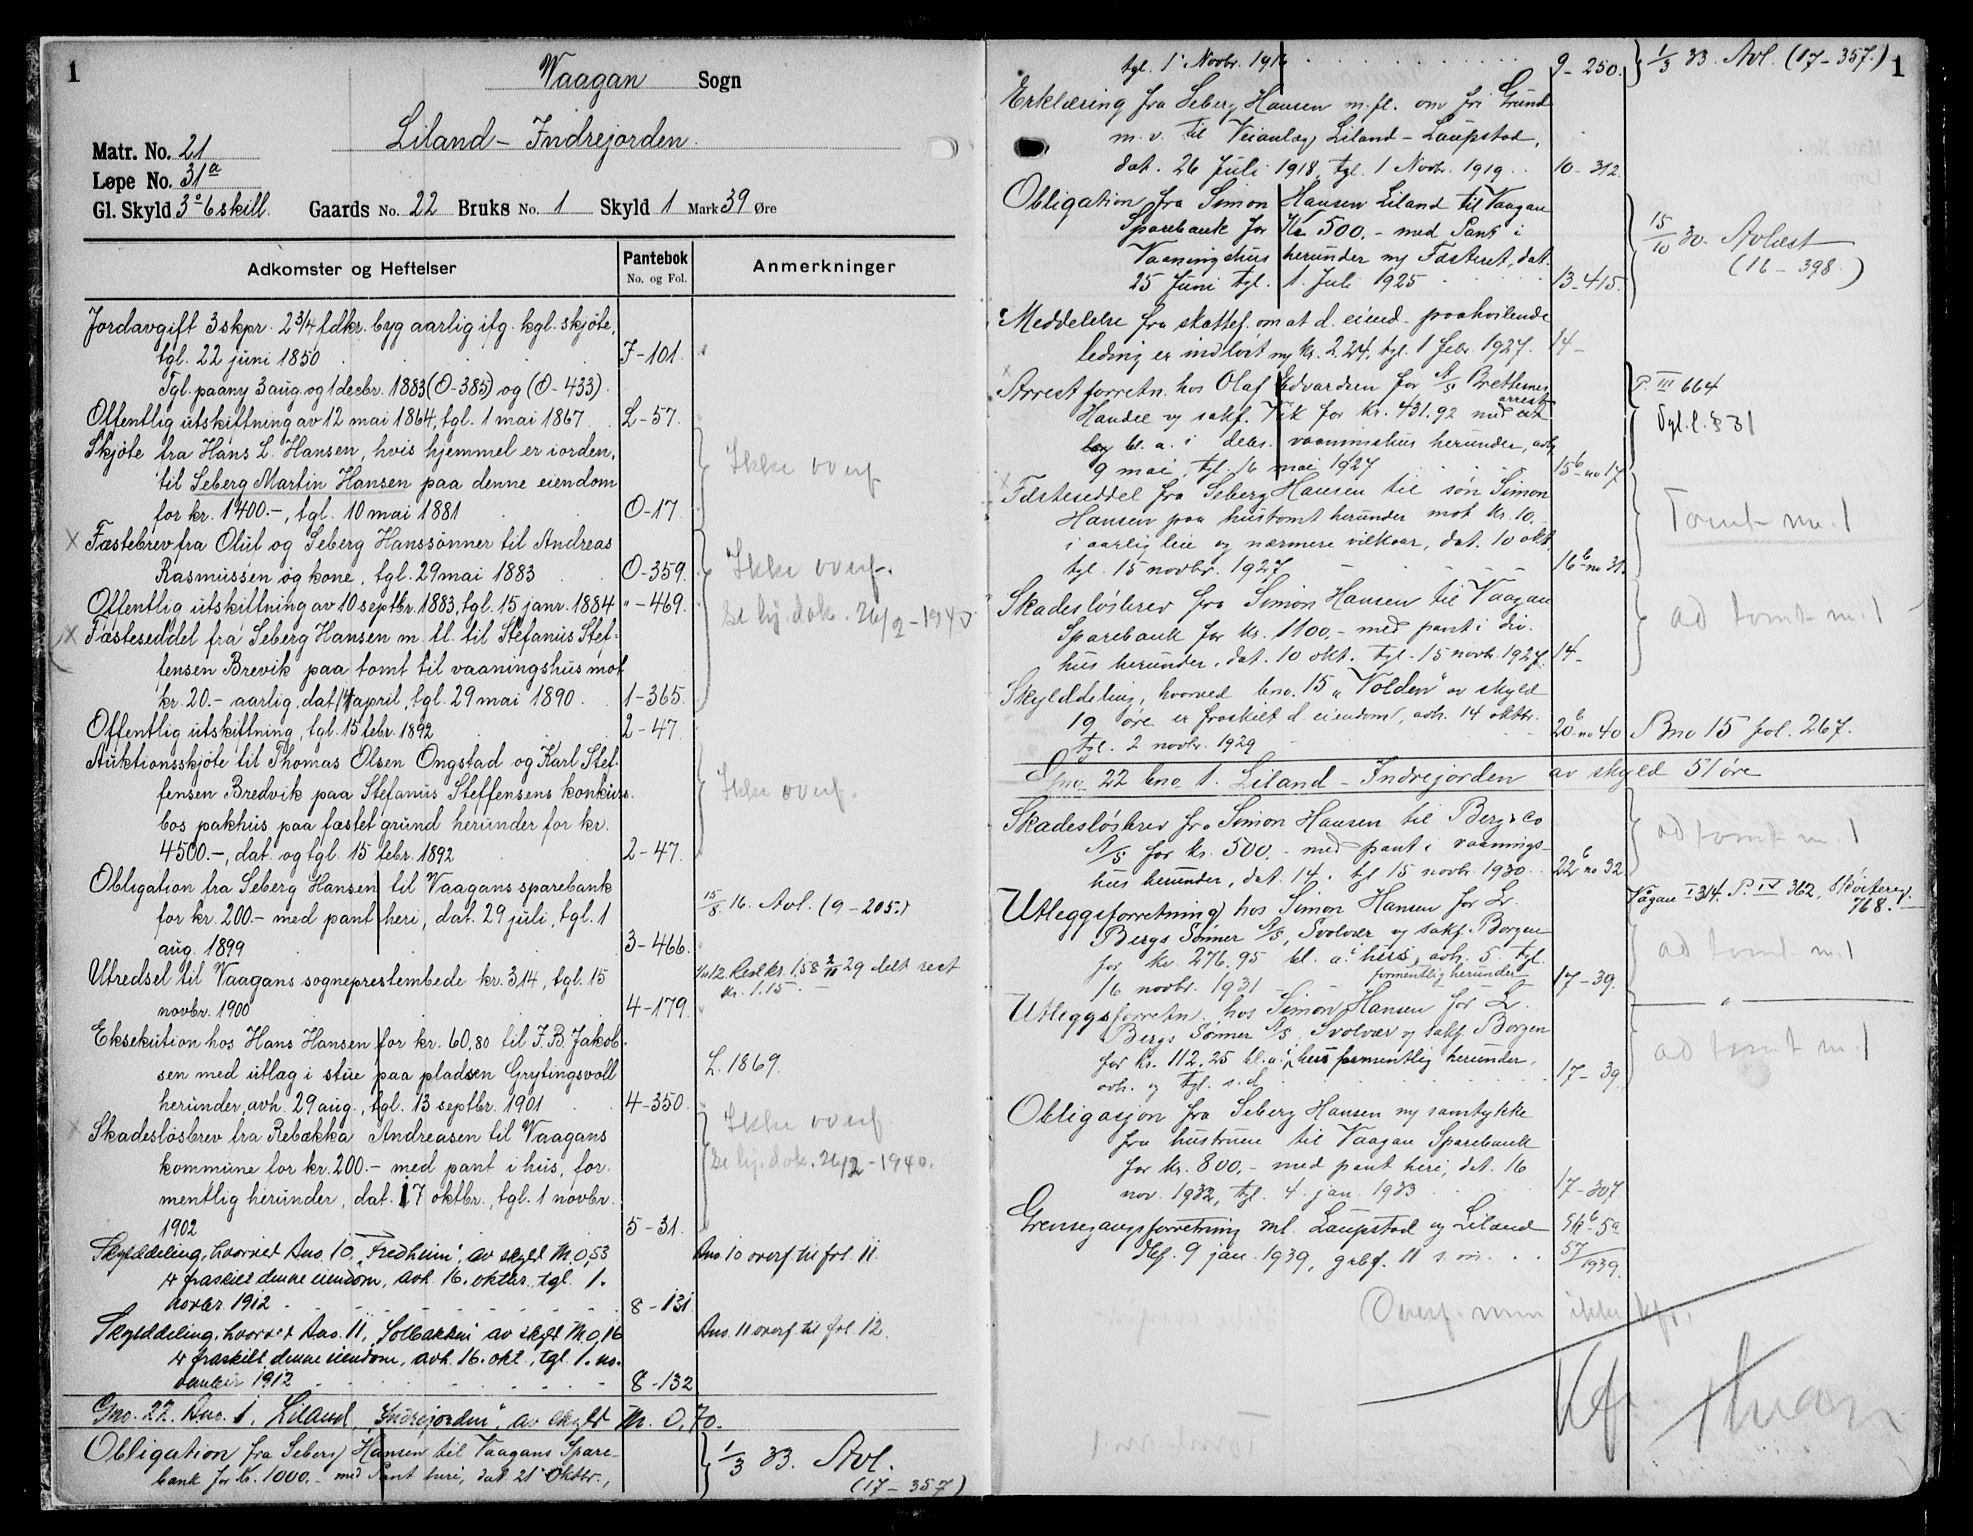 1
Vaagan Sogn
Liland - Indrejorden.
Matr. No. 21
Løpe No. 31a
Gl. Skyld 3 o 6 skill. Gaards No. 22 Bruks No. 1 Skyld 1 Mark 39 Øre
Adkomster og Heftelser Pantebok No. og Fol. Anmerkninger
Jordavgift 3 skpr. 2 3/4 fdkr. byg aarlig ifg. kgl. skjöte,
tgl. 22 juni 1850 . F-101.
Tgl. paany 3 aug. og 1 decbr. 1883 (O-385) og (O-433).
Offentlig utskiftning av 12 mai 1864, tgl. 1 mai 1867 L-57.
Skjöte fra Hans L. Hansen, hvis hjemmel er i orden, Ikke overf.
til Seberg Martin Hansen paa denne eiendom
for kr. 1400.-, tgl. 10 mai 1881 O-17.
X Fæstebrev fra Oluf og Seberg Hanssönner til Andreas
Rasmussen og kone, tgl. 29 mai 1883 O-359. Ikke overf.
Offentlig utskiftning av 10 septbr. 1883, tgl. 15 janr. 1884 " -469. Se hj. dok. 26/2-1940
X Fæsteseddel fra Seberg Hansen m. fl. til Stefanus Stef-
fensen Brevik paa tomt til vaaningshus mot
kr. 20.- aarlig, dat. 14 april, tgl. 29 mai 1890 . 1-365.
Offentlig utskiftning, tgl. 15 febr. 1892 2-47.
Auktionsskjöte til Thomas Olsen Ongstad og Karl Stef-
fensen Bredvik paa Stefanus Steffensens konkurs- Ikke overf.
bos pakhus paa fæstet grund herunder for kr.
4500.-, dat. og tgl. 15 febr. 1892 2-47.
Obligation fra Seberg Hansen til Vaagans sparebank
for kr. 200.- med pant heri, dat. 29 juli, tgl. 1 15/8. 16. Avl. (9-205.)
aug. 1899 3-466.
Utredsel til Vaagans sogneprestembede kr. 3,14, tgl. 15
novbr. 1900 4-179. kr. 1.15.
Eksekution hos Hans Hansen for kr. 60,80 til F. B. Jakob-
sen med utlæg i stue paa pladsen Grytingsvoll L. 1869.
herunder, avh. 29 aug., tgl. 13 septbr. 1901 4-350.
X Skadeslösbrev fra Rebækka Andreasen til Vaagans Ikke overf.
kommune for kr. 200.- med pant i hus, for- Se hj. dok. 26/2-1940.
mentlig herunder, dat. 17 oktbr., tgl. 1 novbr.
1902 5-31.
Skylddeling, hvorved Bno. 10, „Fredheim", av skyld M. 0,53 Bno 10 overf. til fol. 11.
er fraskilt denne eiendom, avh. 16. oktbr. tgl. 1.
novbr. 1912 . 8-131
Skylddeling, hvorved Bno. 11, „Solbakken" av skyld M. 0,16 Bno. 11 overf. til fol. 12.
er fraskilt denne eiendom, avh. 16. okt., tgl. 1. no-
vember 1912 8-132
Gno. 22. Bno. 1. Liland, „Indrejorden", av skyld M. 0,70.
Obligation fra Seberg Hansen til Vaagans Spare- 1/3 33. Avl.
bank for Kr. 1000.- med Pant heri, dat. 21 Oktbr., (17-357)
1
tgl. 1 Novbr. 1916 9-250. 1/3 33. Avl. (17-357.)
Erklæring fra Seberg Hansen m. fl. om fri Grund
m. v. til Veianlæg Liland - Laupstad,
dat. 26 Juli 1918, tgl. 1 Novbr. 1919 . . 10-312
Obligation fra Simon Hansen Liland til Vaagan
Sparebank for Kr. 500.- med Pant i 15/10 30. Avlæst
Vaaningshus herunder og Fæsteret, dat. (16-398.)
25 Juni tgl. 1. Juli 1925 13-415.
Meddelelse fra skattef. om at d. eiend. paahvilende
leding er indløst m kr. 2.24, tgl. 1 febr. 1927. 14-
X Arrestforretn. hos Olaf Edvardsen for A/S Brettesnes P. III 664
Handel og sakf. Vik for kr. 431.92 med arrest Tgl. l. § 31
bl. a. i debs. vaaningshus herunder, avh.
9 mai, tgl. 16 mai 1927 15b no 17
X Fæsteseddel fra Seberg Hansen til søn Simon
Hansen paa hustomt herunder mot kr. 10.- Tomt nr. 1
i aarlig leie og nærmere vilkaar, dat. 10 okt.
tgl. 15 novbr. 1927 16b no 31.
Skadesløsbrev fra Simon Hansen til Vaagan
Sparebank for kr. 1100,- med pant i div. ad tomt nr. 1
hus herunder, dat. 10 okt. tgl. 15 novb. 1927. 14-
Skylddeling, hvorved bno. 15 „Volden" av skyld
19 øre er fraskilt d. eiendom, avh. 14 oktbr. 20b no 40 Bno 15 fol. 267.
tgl. 2 novbr. 1929
Gno 22 bno 1. Liland - Indrejorden av skyld 51 øre
Skadesløsbrev fra Simon Hansen til Berg & Co
A/S for kr. 500,- med pant i vaanings- ad tomt nr. 1
hus herunder, dat. 14. tgl 15 novbr. 1930. 22b no 32
Utleggsforretning hos Simon Hansen for L. Vågan I 314. P. IV 362, 768.
Bergs Sønner A/S, Svolvær og sakf. Borgen
for kr. 276,95 bl. a. i hus, avh. 5. tgl. ad tomt nr. 1
16 novbr. 1931 - formentlig herunder 17-39.
Utleggsforretn. hos Simon Hansen for L. — " —
Bergs Sønner A/S, Svolvær og sakf. Borgen
for kr. 112,25 bl. a. i hus formentlig herunder, ad tomt nr. 1
avh. og tgl. s. d. 17-39
Obligasjon fra Seberg Hansen m samtykke
fra hustruen til Vaagan Sparebank
for kr. 800,- med pant heri, dat. 16
nov. 1932, tgl. 4. jan. 1933 17-307
Grensegangsforretning ml. Laupstad og Liland
9 jan. 1939, 11 s. m. . . 57/1939.
Overf. men ikke kfr.
Kfr.